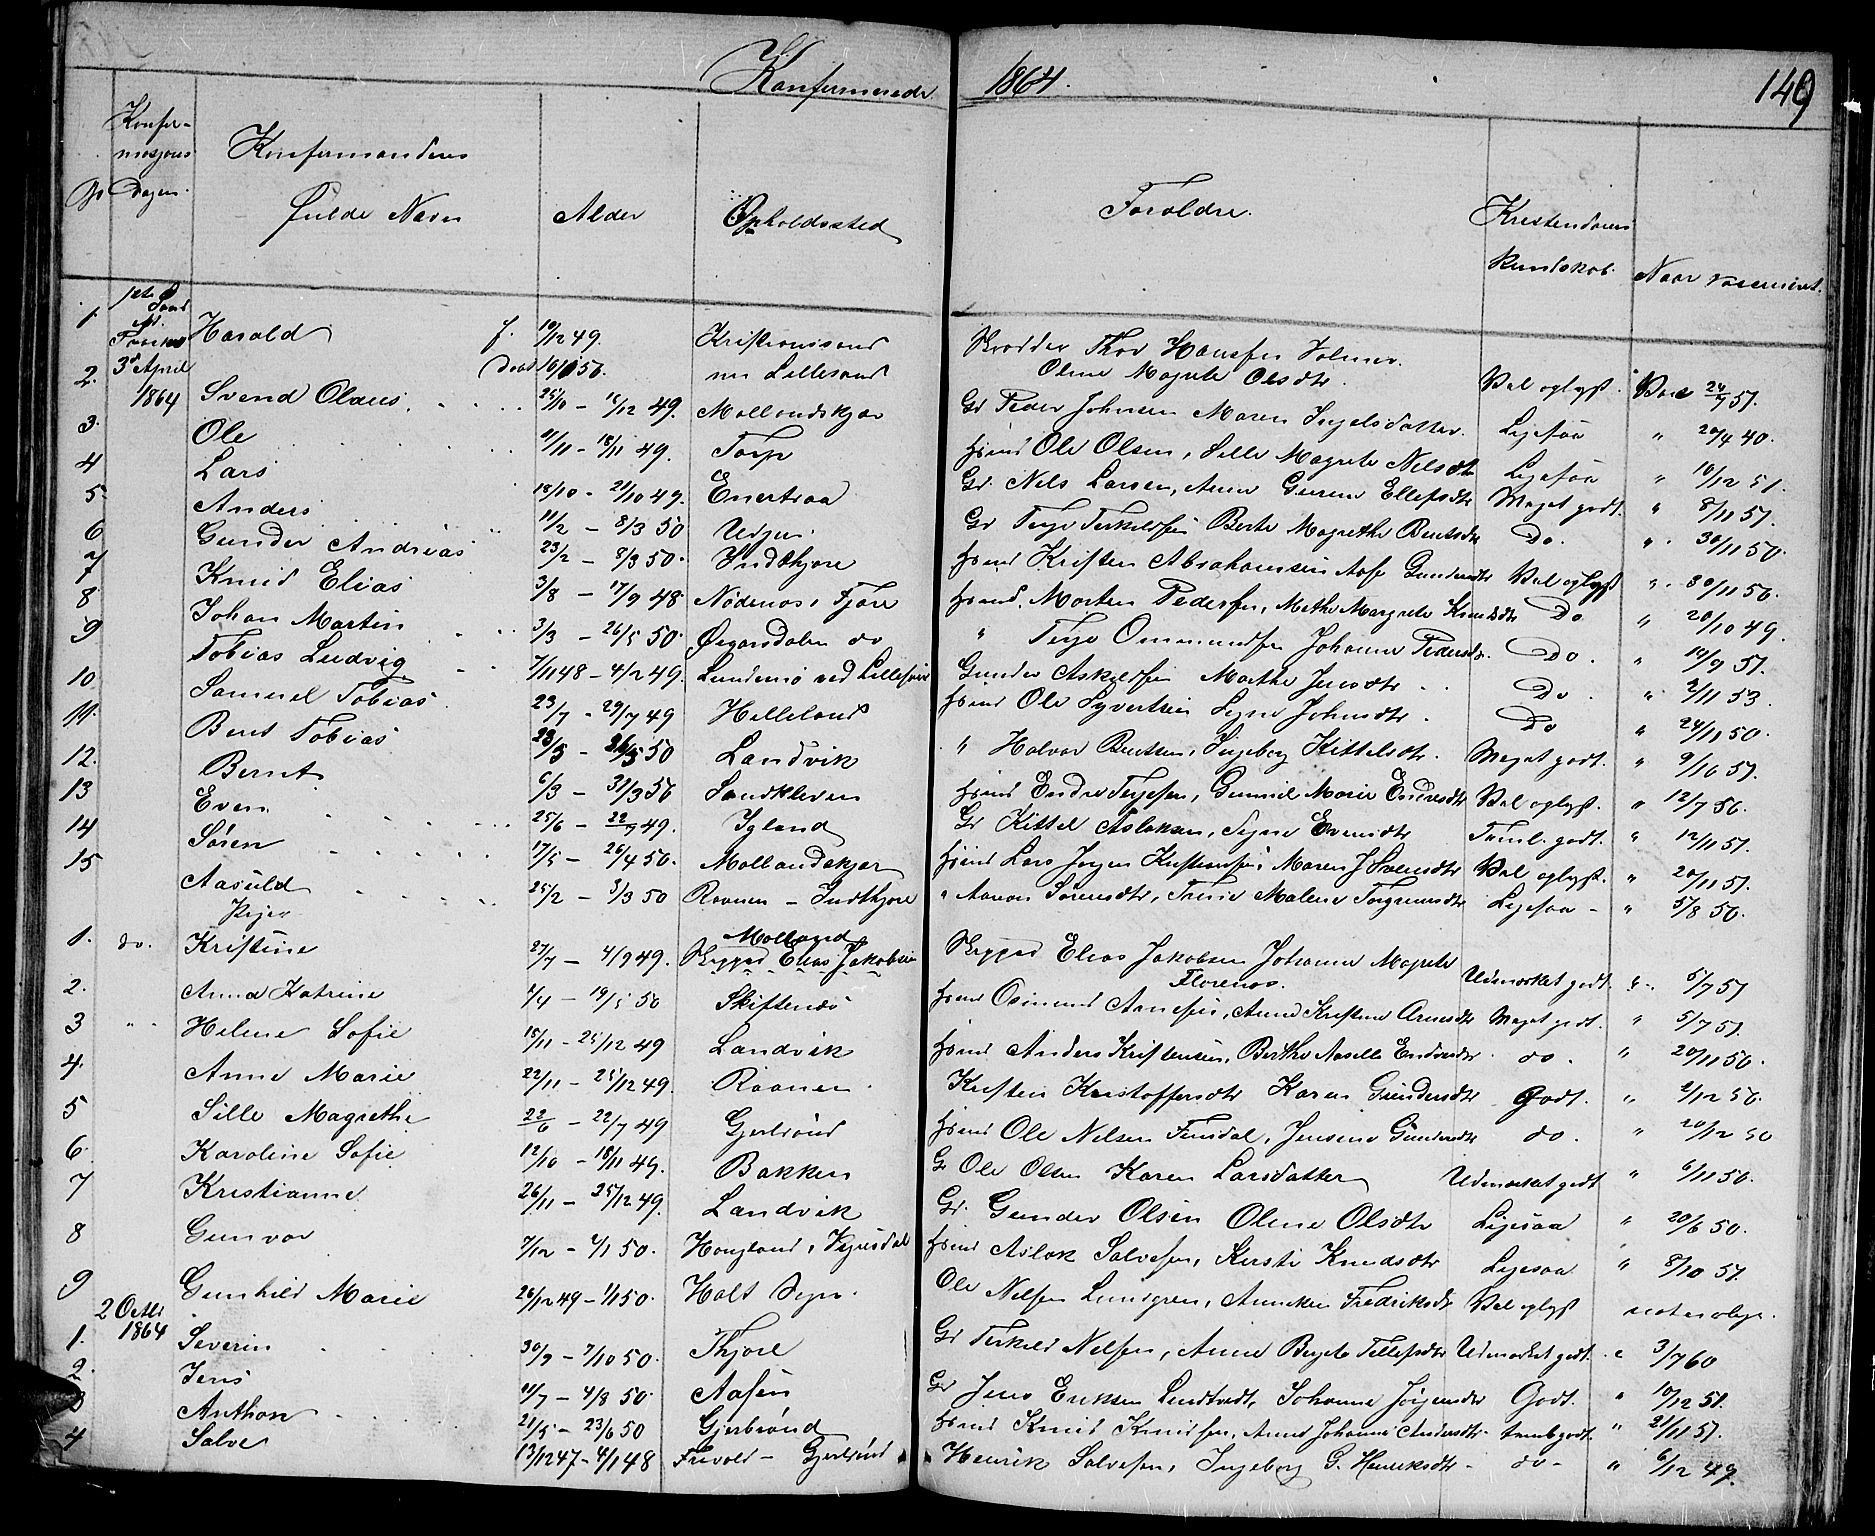 Konfermerede 1864. 149
No Konfer-
masjons
Dagen. Konfermandens
Fulde Navn Alder Opholdssted Foreldre. Kristendoms
Kundskab. Naar vaccineret.
1. Harald f. 10/12 49. Kristianssand Skrædder Thor
Døbt nu Lillesand Oline Magrete Olsdtr. Vel oplyst. Vac 24/7 51.
3d April
1864
2. Svend Olaus 25/10 - 16/12 49. Mollandskjær Gr Peder Johnsen Maren Ingelsdatter. Ligesaa " 20/4 40.
3. Ole 11/11 - 18/11 49. Torp Hsmd Ole Olsen, Sille Magrete Nelsdtr Ligesaa " 10/12 51.
4 Lars 18/10 - 21/10 49. Enertraa Gr. Nels Larsen, Anne Gurine Ellefsdtr Meget godt. " 8/11 51.
5. Anders 11/2 - 8/3 50 Gr Terje Terkeldsen Berte Magrethe Bentsdtr Do. " 30/11 50.
6 Gunder Andreas 23/2 - 8/3 50. Indthjore Hsmd Kristen Abrahamsen Aase Gundersdtr Vel oplyst " 30/11 50.
7 Knud Elias 3/8 - 17/9 48 Nødenes, Fjære Hsmd. Morten Pedersen, Mathe Margrete Knudsdtr Do " 20/10 49.
8. Johan Martin 3/3 - 26/5 50. do " Terje Ommundsen Johanne Pedersdtr. Do. " 10/9 51.
9 Tobias Ludvig 7/11 48 - 4/2 49. ved Lillesand Gunder Askeldsen Marthe Jensdtr Do " 2/11 53.
10 Samuel Tobias 23/7 - 29/7 49 Helleland Hsmd Ole Syvertsen Signe Johnsdtr. Do " 24/11 50.
11. Bent Tobias 50 Landvik " Halvor Bentsen, Ingeborg Kittelsdtr. Meget godt. " 9/10 51.
12. Bernt 6/3 - 31/3 50 Sandkleven Hsmd Endre Terjesen, Gunnild Marie Endresdtr Vel oplyst. " 12/7 50.
13 Even 25/6 - 22/7 49. Igland Gr. Kittel Aslaksen, Signe Evensdtr Teml. godt. " 12/11 51.
14 Søren 17/5 - 26/4 50. Mollandskjær Hsmd Lars Jørgen Kristensen Maren J Svensdtr Vel oplyst. " 20/11 51.
15 Aasuld 25/2 - 3/3 50 Raanen - Indthjore " Aanon Sørensdtr, Trine Malene Torgrimsdtr Ligesaa - " 5/8 50.
Piger
1. do. Kristine 27/7 - 4/9 49. Molland
Skipper Elias Jakobsen Skipper Elias Jakobsen Johanne Magrete
Florenes. Udmærket godt. " 5/7 51
2. Anna Katrine 1/4 - 19/5 50 Skiftenes Hsmd Osmund Arnesen, Anne Kristine Arnesdtr Meget godt. " 5/7 51.
3 " " Helene Sofie 18/11 - 25/12 49 Landvik Hsmd Anders Kristensen, Berthe Endresdtr do. " 20/11 50.
4. Anne Marie 22/11 - 25/12 49. Raanen. Kristen Kristoffersdtr Karen Gundersdtr Godt. " 2/12 50.
5 Sille Magrethe 22/6 - 22/7 49 Gjerbrønd Hsmd Ole Nelsen Finsdal, Jensine Gundersdtr do. " 20/12 50
6. Karoline Sofie 12/10 - 18/11 49. Bakken Gr Ole Olsen Karen Larsdatter Udmærket godt " 6/11 50.
7 Kristianne 26/11 - 25/12 49. Landvik Gr. Gunder Olsen Oline Olsdtr Ligesaa " 20/6 50.
8 Gunvor 7/12 - 1/1 50. Haugland, Vegusdal Hsmd Aslak Salvesen, Kersti Knudsdtr Ligesaa " 8/10 51.
9 Gunhild Marie 26/12 49 - 1/1 50. Holt Segn. Ole Nelsen Lundgren, Anneken Fredriksdtr Vel oplyst
2 Octbr
1864
1. Severin 30/9 - 7/10 50. Thjore Gr Terkild Nelsen, Anne Bergete Tellefsdtr Udmærket godt. " 3/7 60
2. Jens 11/7 - 4/8 50. Aasen Gr Jens Eriksen Johanne Jørgensdtr Godt. " 10/12 51.
3 Anthon 21/5 - 23/6 50 Gjerbrønd Hsmd Knud Knudsen, Anne Johanne Andersdtr - temlgodt. " 21/11 51.
4 Salve 13/12 47 - 4/1 48 Frivold - Gjerbrønd " Henrik Salvesen, Ingeborg G. Henriksdtr - do - " 6/12 49.